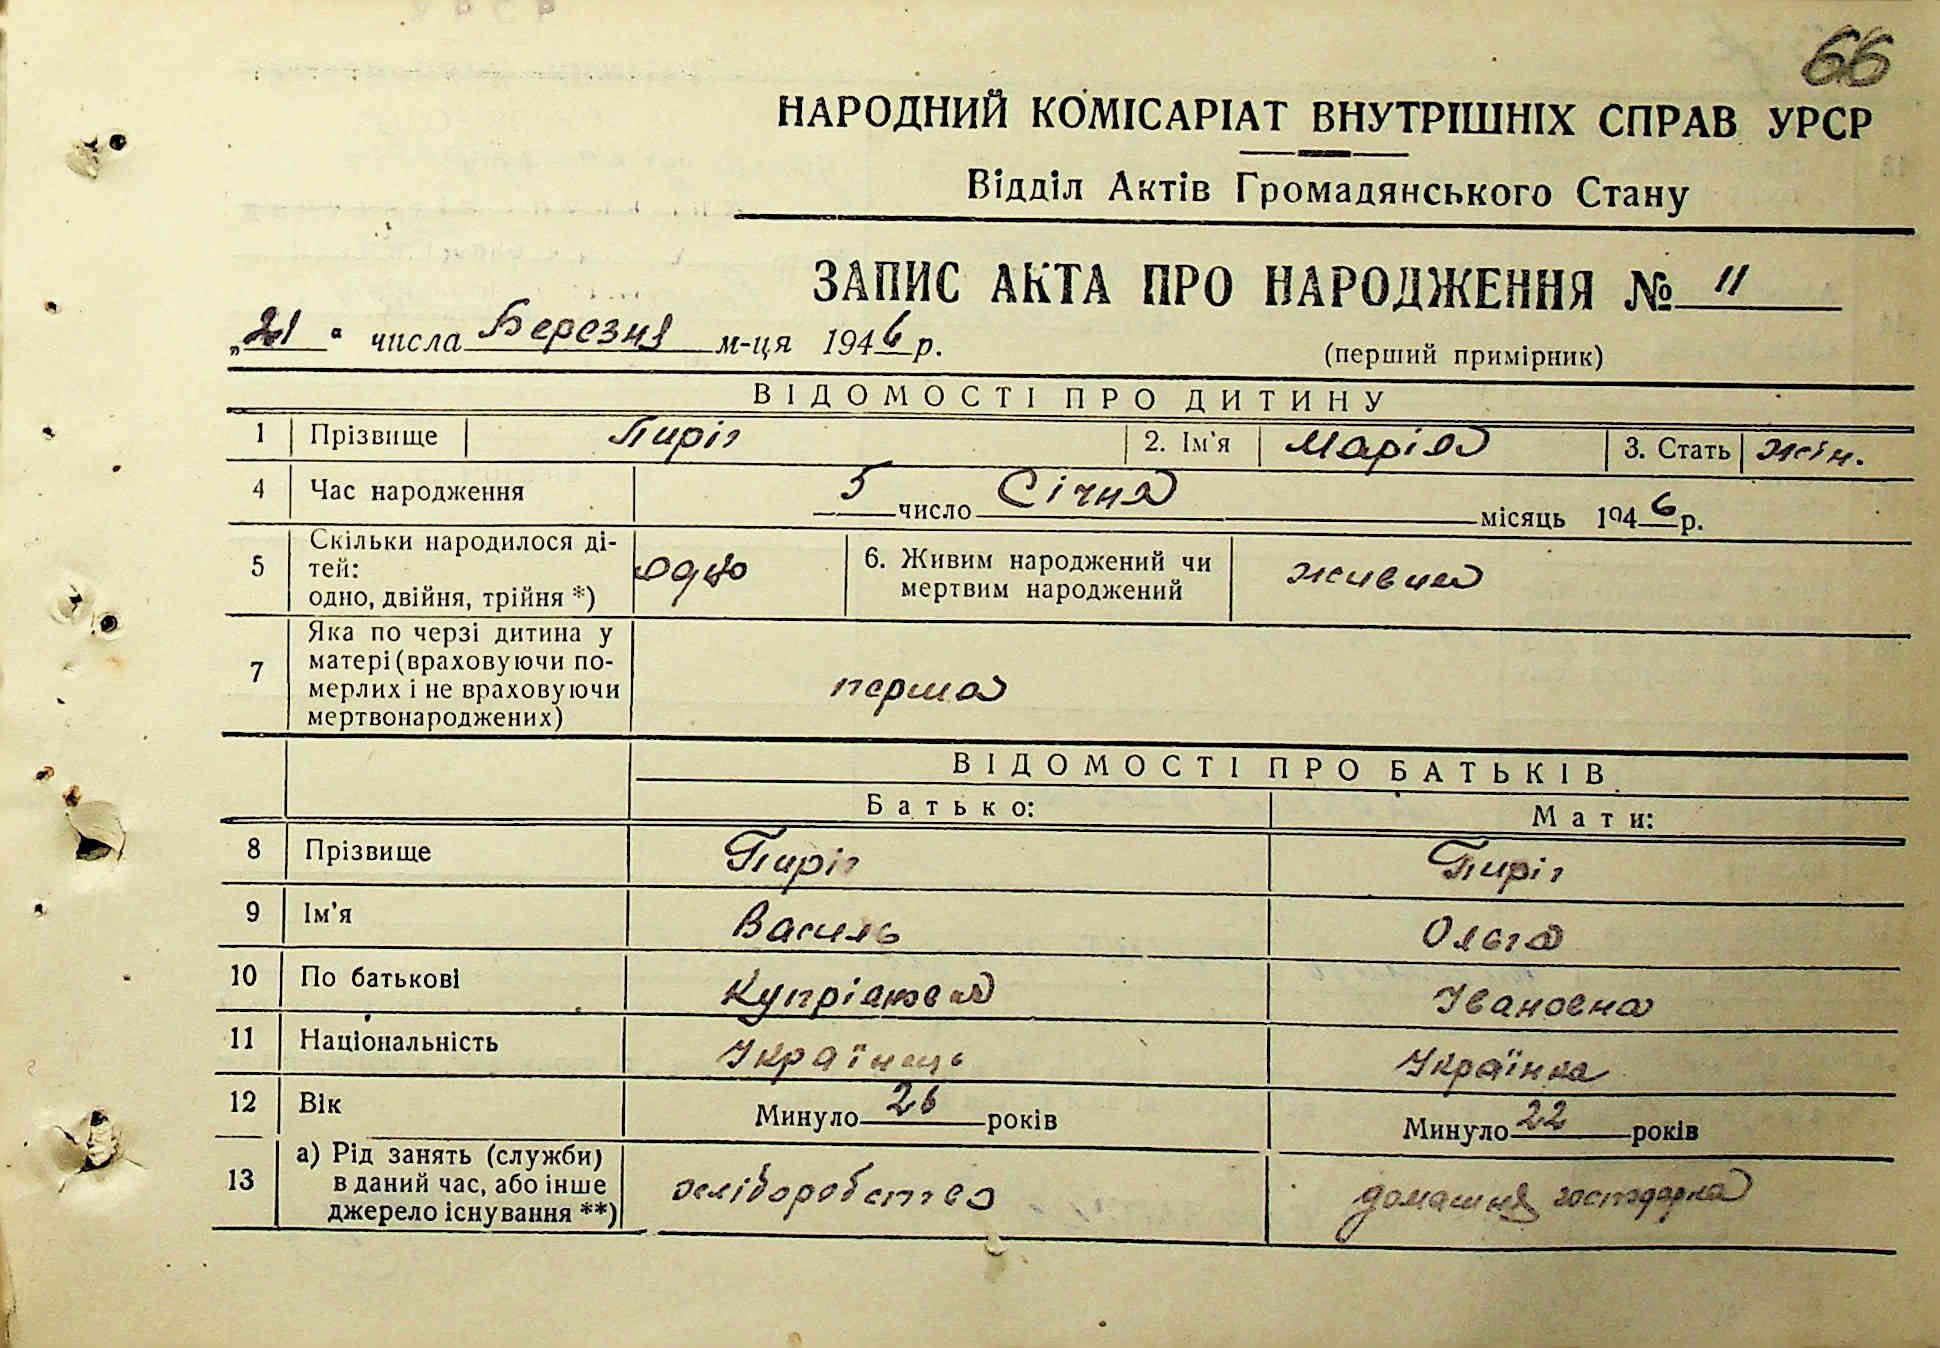 66
НАРОДНИЙ КОМІСАРІАТ ВНУТРІШНІХ СПРАВ УРСР
Відділ Актів Громадянського Стану
ЗАПИС АКТА ПРО НАРОДЖЕННЯ № 11
„21“ числа Березня м-ця 1946 р.
(перший примірник)
ВІДОМОСТІ ПРО ДИТИНУ
1 Прізвище Пиріг 2. Ім'я Марія 3. Стать жін.
4 Час народження 5 число Січня місяць 1946 р.
5 Скільки народилося ді-
тей:
одно, двійня, трійня *) одно
6. Живим народжений чи
мертвим народжений живим
7 Яка по черзі дитина у
матері (враховуючи по-
мерлих і не враховуючи
мертвонароджених) перша
ВІДОМОСТІ ПРО БАТЬКІВ
Батько: Мати:
8 Прізвище Пиріг Пиріг
9 Ім'я Василь Ольга
10 По батькові Івановна
11 Національність Українець Українка
12 Вік Минуло 26 років Минуло 22 років
13 а) Рід занять (служби)
в даний час, або інше
джерело існування **) хліборобство домашня господарка